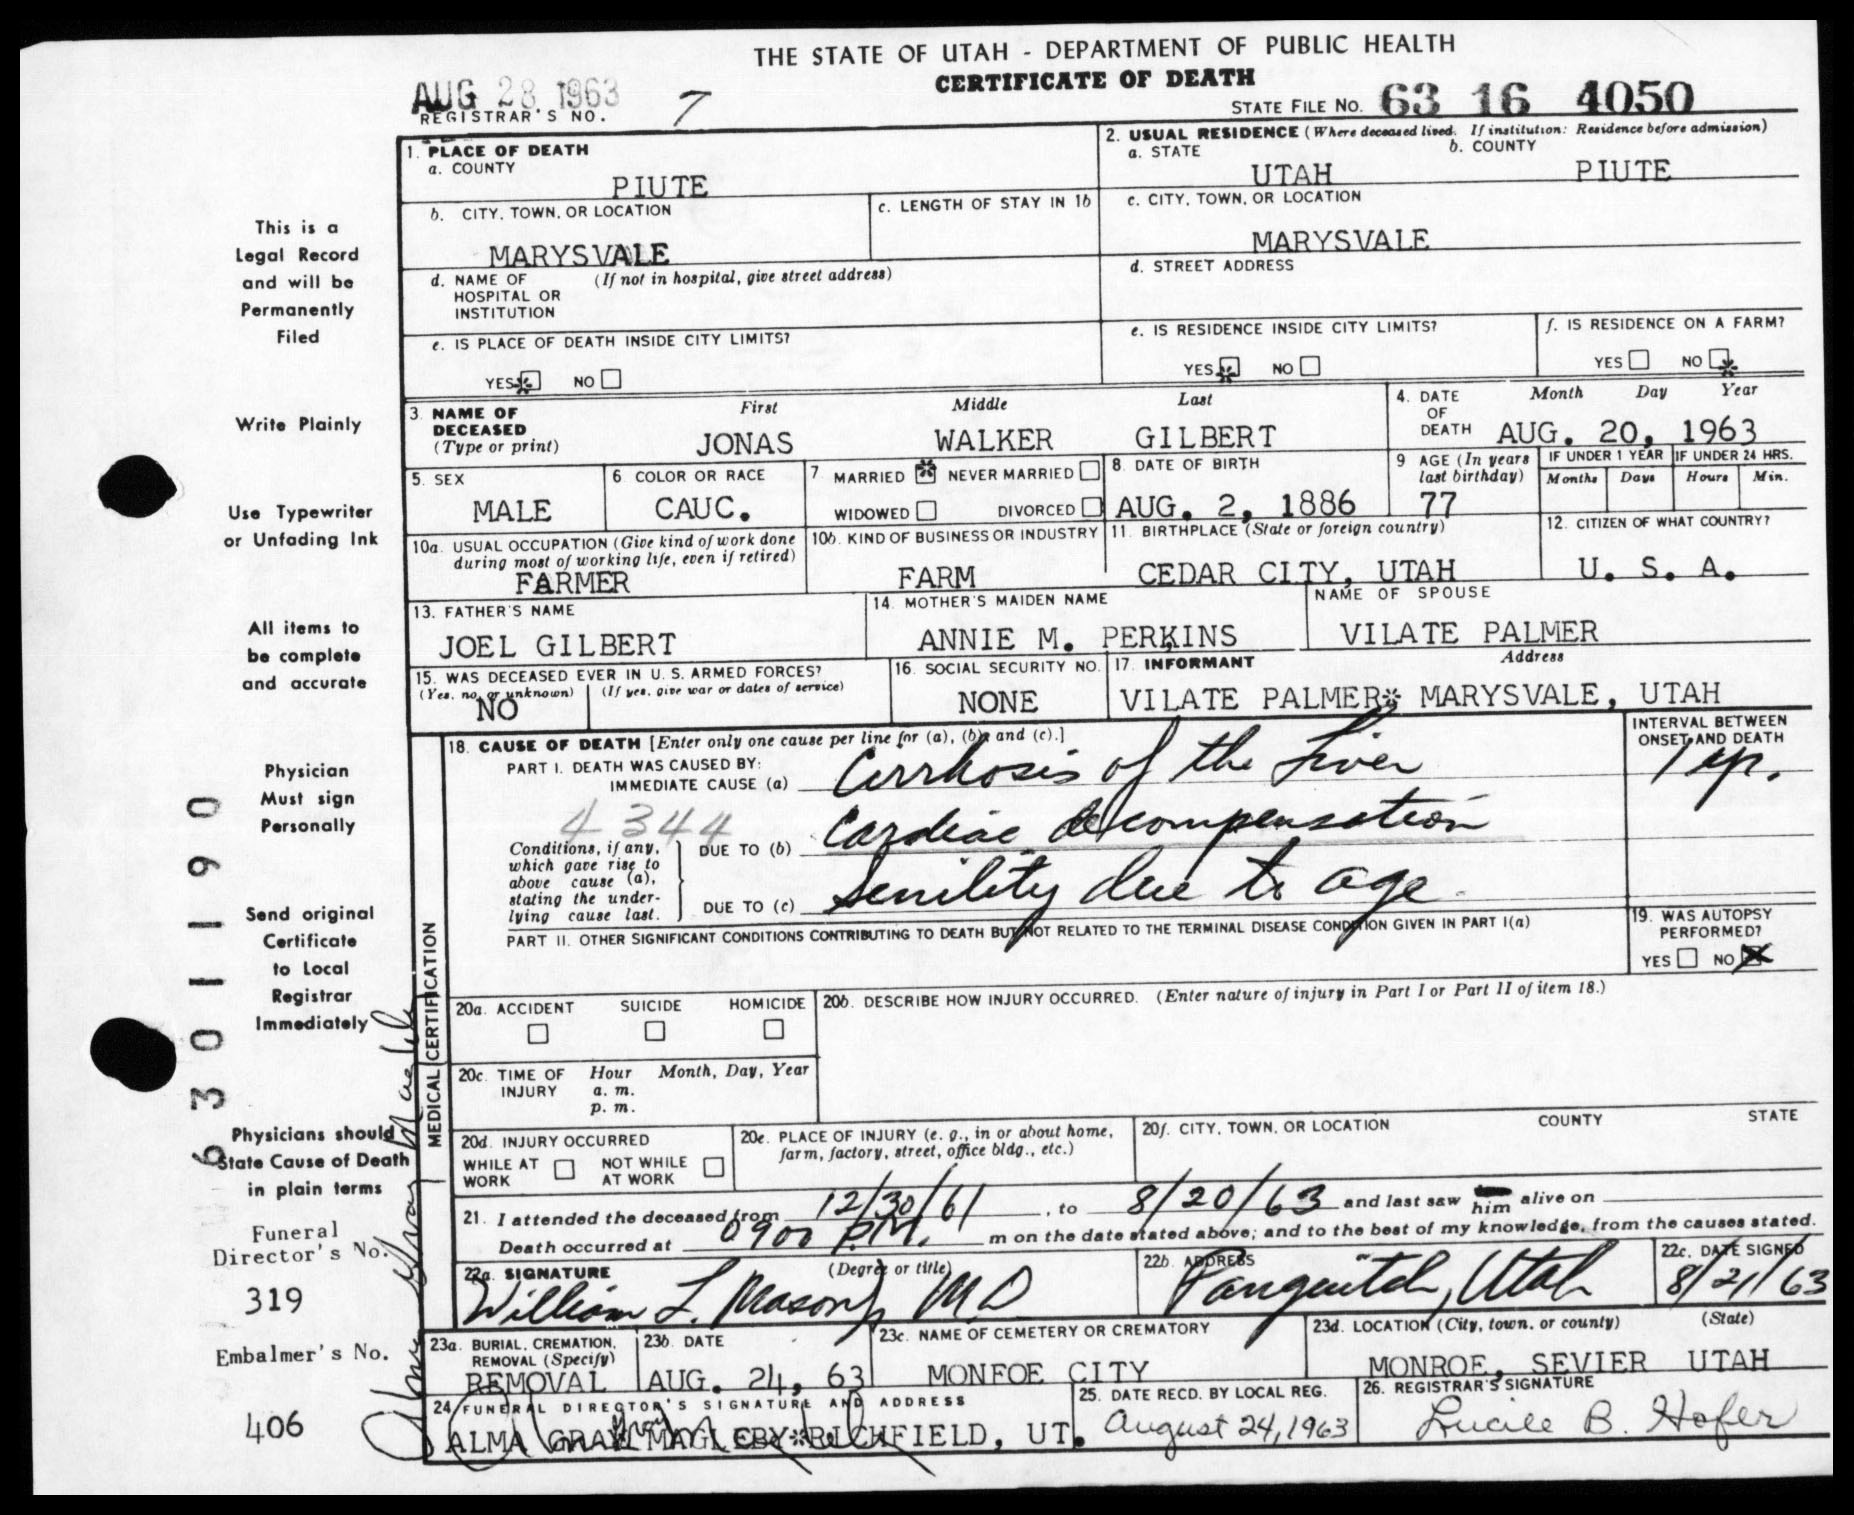 THE STATE OF UTAH - DEPARTMENT OF PUBLIC HEALTH
CERTIFICATE OF DEATH
AUG 28 1963
REGISTRAR'S NO. 7
STATE FILE NO. 63 16 4050
1. PLACE OF DEATH
a. COUNTY
PIUTE
2. USUAL RESIDENCE (Where deceased lived. If institution: Residence before admission)
a. STATE b. COUNTY
UTAH PIUTE
b. CITY, TOWN, OR LOCATION
MARYSVALE
c. LENGTH OF STAY IN 1b
c. CITY, TOWN, OR LOCATION
MARYSVALE
d. NAME OF (If not in hospital, give street address)
HOSPITAL OR
INSTITUTION
d. STREET ADDRESS
e. IS PLACE OF DEATH INSIDE CITY LIMITS?
YES NO
e. IS RESIDENCE INSIDE CITY LIMITS?
YES NO
f. IS RESIDENCE ON A FARM?
YES NO
3. NAME OF
DECEASED
(Type or print)
First Middle Last
JONAS WALKER GILBERT
4. DATE
OF
DEATH
Month Day Year
AUG. 20, 1963
5. SEX
MALE
6. COLOR OR RACE
CAUC.
7. MARRIED NEVER MARRIED
WIDOWED DIVORCED
8. DATE OF BIRTH
AUG. 2, 1886
9 AGE (In years
last birthday)
77
IF UNDER 1 YEAR IF UNDER 24 HRS.
Months Days Hours Min.
10a. USUAL OCCUPATION (Give kind of work done
during most of working life, even if retired)
FARMER
10b. KIND OF BUSINESS OR INDUSTRY
FARM
11. BIRTHPLACE (State or foreign country)
CEDAR CITY, UTAH
12. CITIZEN OF WHAT COUNTRY?
U. S. A.
13. FATHER'S NAME
JOEL GILBERT
14. MOTHER'S MAIDEN NAME
ANNIE M. PERKINS
NAME OF SPOUSE
VILATE PALMER
15. WAS DECEASED EVER IN U. S. ARMED FORCES?
(Yes, no, or unknown) (If yes, give war or dates of service)
NO
16. SOCIAL SECURITY NO.
NONE
17. INFORMANT Address
VILATE PALMER* MARYSVALE, UTAH
MEDICAL CERTIFICATION
18. CAUSE OF DEATH [Enter only one cause per line for (a), (b), and (c).]
INTERVAL BETWEEN
ONSET AND DEATH
PART I. DEATH WAS CAUSED BY:
IMMEDIATE CAUSE (a) Cirrhosis of the Liver
1 yr.
4344
Conditions, if any,
which gave rise to
above cause (a),
stating the under-
lying cause last.
DUE TO (b) Cardiac decompensation
DUE TO (c) Senility due to age
PART II. OTHER SIGNIFICANT CONDITIONS CONTRIBUTING TO DEATH BUT NOT RELATED TO THE TERMINAL DISEASE CONDITION GIVEN IN PART I(a)
19. WAS AUTOPSY
PERFORMED?
YES NO
20a. ACCIDENT SUICIDE HOMICIDE
20b. DESCRIBE HOW INJURY OCCURRED. (Enter nature of injury in Part I or Part II of item 18.)
20c. TIME OF Hour Month, Day, Year
INJURY a. m.
p. m.
20d. INJURY OCCURRED
WHILE AT NOT WHILE
WORK AT WORK
20e. PLACE OF INJURY (e. g., in or about home,
farm, factory, street, office bldg., etc.)
20f. CITY, TOWN, OR LOCATION COUNTY STATE
21. I attended the deceased from 12/30/61, to 8/20/63 and last saw him alive on
Death occurred at 0900 P.M. m on the date stated above; and to the best of my knowledge, from the causes stated.
22a. SIGNATURE (Degree or title)
William L. Mason MD
22b. ADDRESS
Panguitch, Utah
22c. DATE SIGNED
8/21/63
23a. BURIAL, CREMATION,
REMOVAL (Specify)
REMOVAL
23b. DATE
AUG. 24, 63
23c. NAME OF CEMETERY OR CREMATORY
MONFOE CITY
23d. LOCATION (City, town, or county) (State)
MONROE, SEVIER UTAH
24 FUNERAL DIRECTOR'S SIGNATURE AND ADDRESS
ALMA GRAY MAGLEBY*RICHFIELD, UT.
25. DATE RECD. BY LOCAL REG.
August 24, 1963
26. REGISTRAR'S SIGNATURE
Lucile B. Hofer
This is a
Legal Record
and will be
Permanently
Filed
Write Plainly
Use Typewriter
or Unfading Ink
All items to
be complete
and accurate
Physician
Must sign
Personally
Send original
Certificate
to Local
Registrar
Immediately
Physicians should
State Cause of Death
in plain terms
Funeral
Director's No.
319
Embalmer's No.
406
6301190